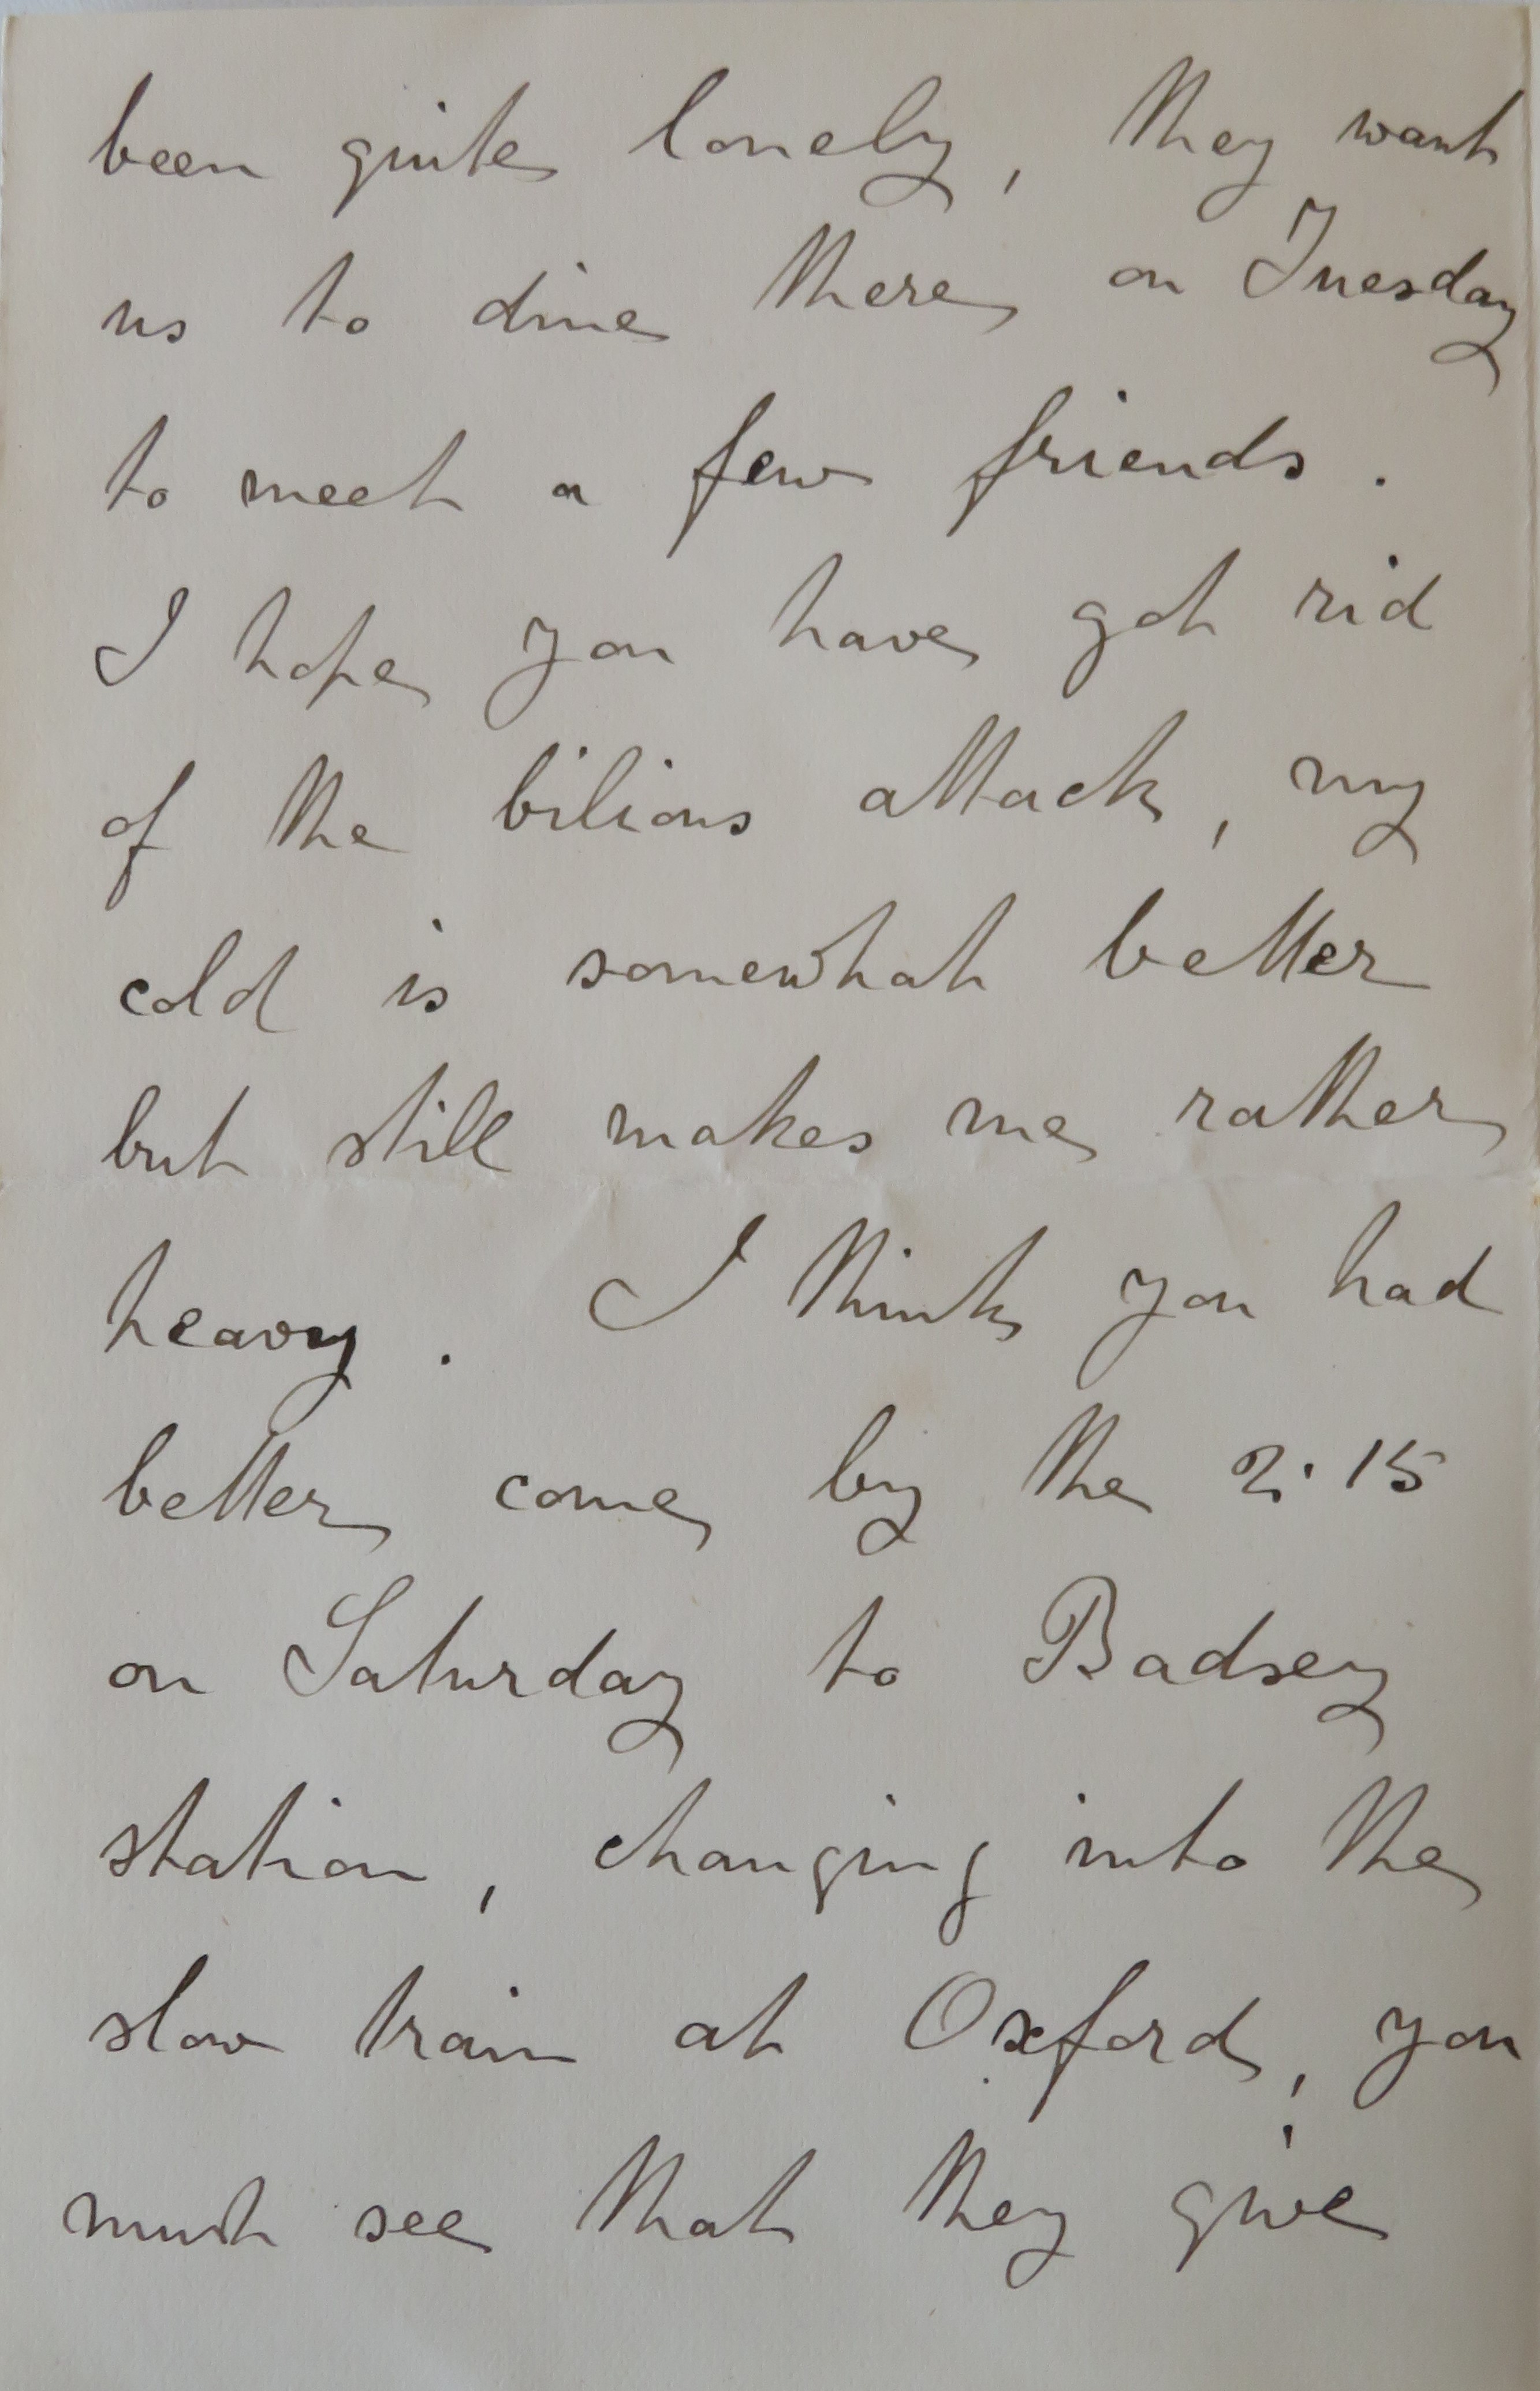 been quite lonely, they want
us to dine there on Tuesday
to meet a few friends.
I hope you have got rid
of the bilious attack, my
cold is somewhat better
but still makes me rather
heavy. I think you had
better come by the 2.15
on Saturday to Badsey
station, changing into the
slow train at Oxford, you
must see that they give